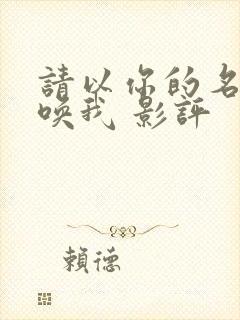 請以你的名
喚我 影評
賴德